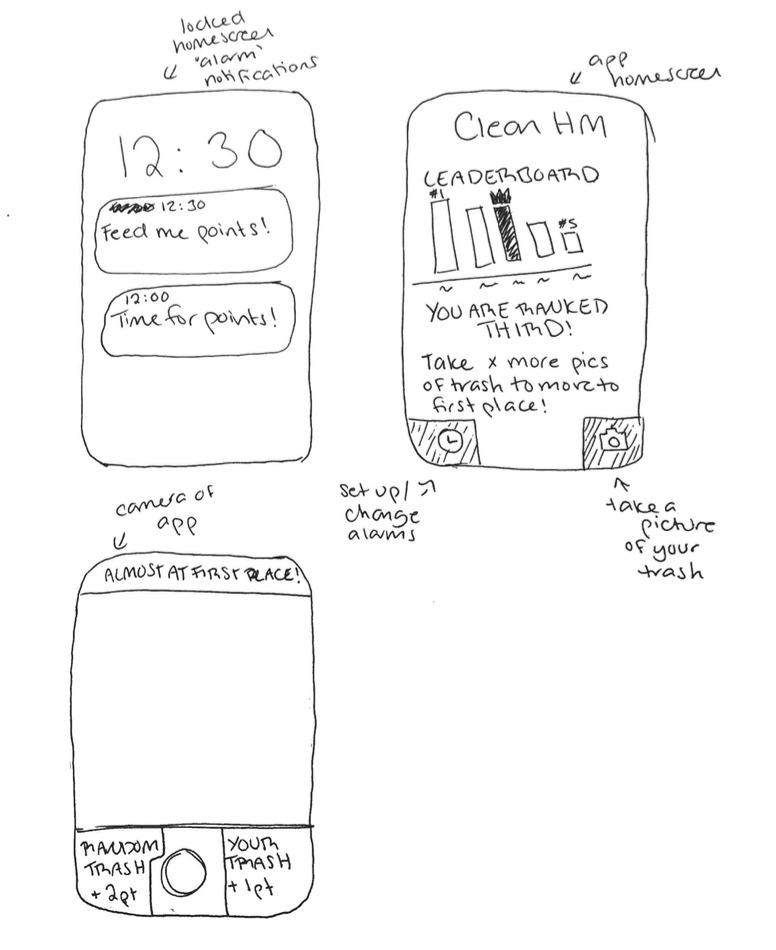 locked
homescreen
"alarm"
notifications
12:30
12:30
Feed me points!
12:00
Time for points!
app
homescreen
Clean HM
LEADERBOARD
#1
#5
YOU ARE RANKED
THIRD!
Take x more pics
of trash to move to
first place!
set up/
change
alarms
take a
picture
of your
trash
camera of
app
ALMOST AT FIRST PLACE!
RANDOM
TRASH
+2pt
YOUR
TRASH
+1pt